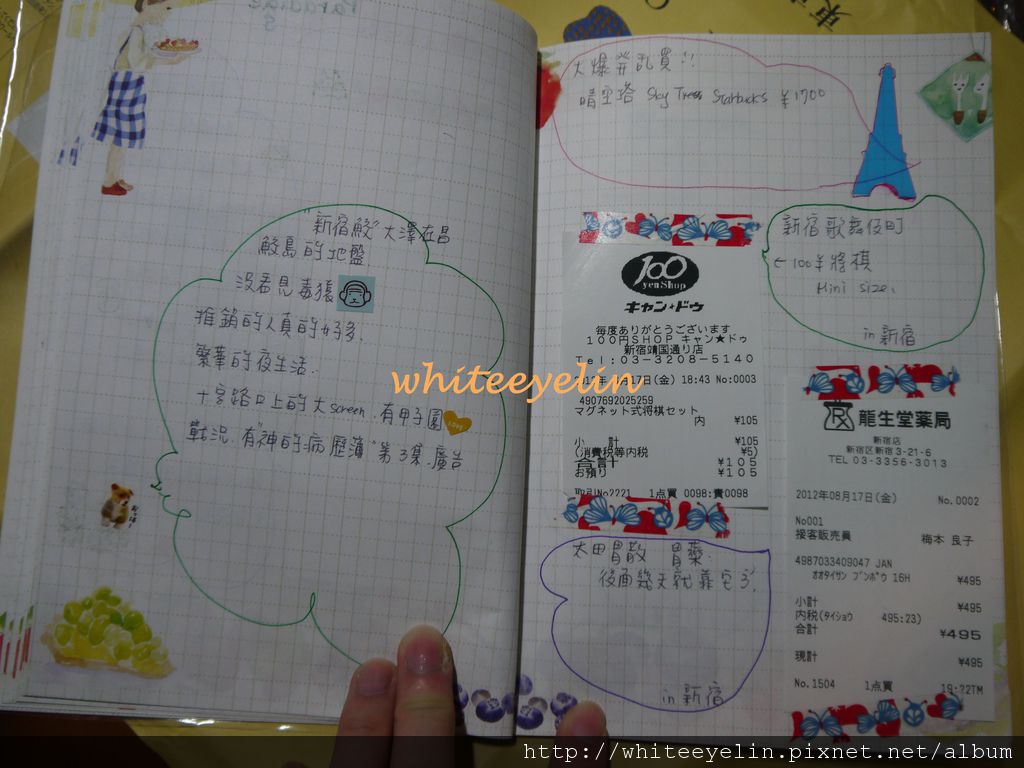 "新宿鮫" 大澤在昌
鮫島的地盤
沒看見毒猿
推銷的人真的好多.
繁華的夜生活.
十字路口上的大screen. 有甲子園
戰況. 有"神的病歷簿"第3集.廣告
大爆發亂買!!
晴空塔 Sky Tree Starbucks ¥1700
新宿歌舞伎町
100¥將棋
Mini size.
in 新宿
100
yen Shop
キャン★ドゥ
毎度ありがとうございます
100円SHOP キャン★ドゥ
新宿靖国通り店
Tel:03-3208-5140
2012年08月17日(金) 18:43 No:0003
4907692025259
マグネット式将棋セット
内 ¥105
小 計 ¥105
(消費税等内税 ¥5)
合計 ¥105
お預り ¥105
取引No2221 1点買 0098:責0098
龍生堂薬局
新宿店
新宿区新宿3-21-6
TEL 03-3356-3013
2012年08月17日(金) No.0002
No001
接客販売員 梅本 良子
4987033409047 JAN
オオタイサン ブンポウ 16H ¥495
小計 ¥495
内税(タイショウ 495:23)
合計 ¥495
現計 ¥495
No.1504 1点買 19:22TM
太田胃散 胃藥.
後面幾天就靠它了.
in 新宿
whiteeyelin
http://whiteeyelin.pixnet.net/album